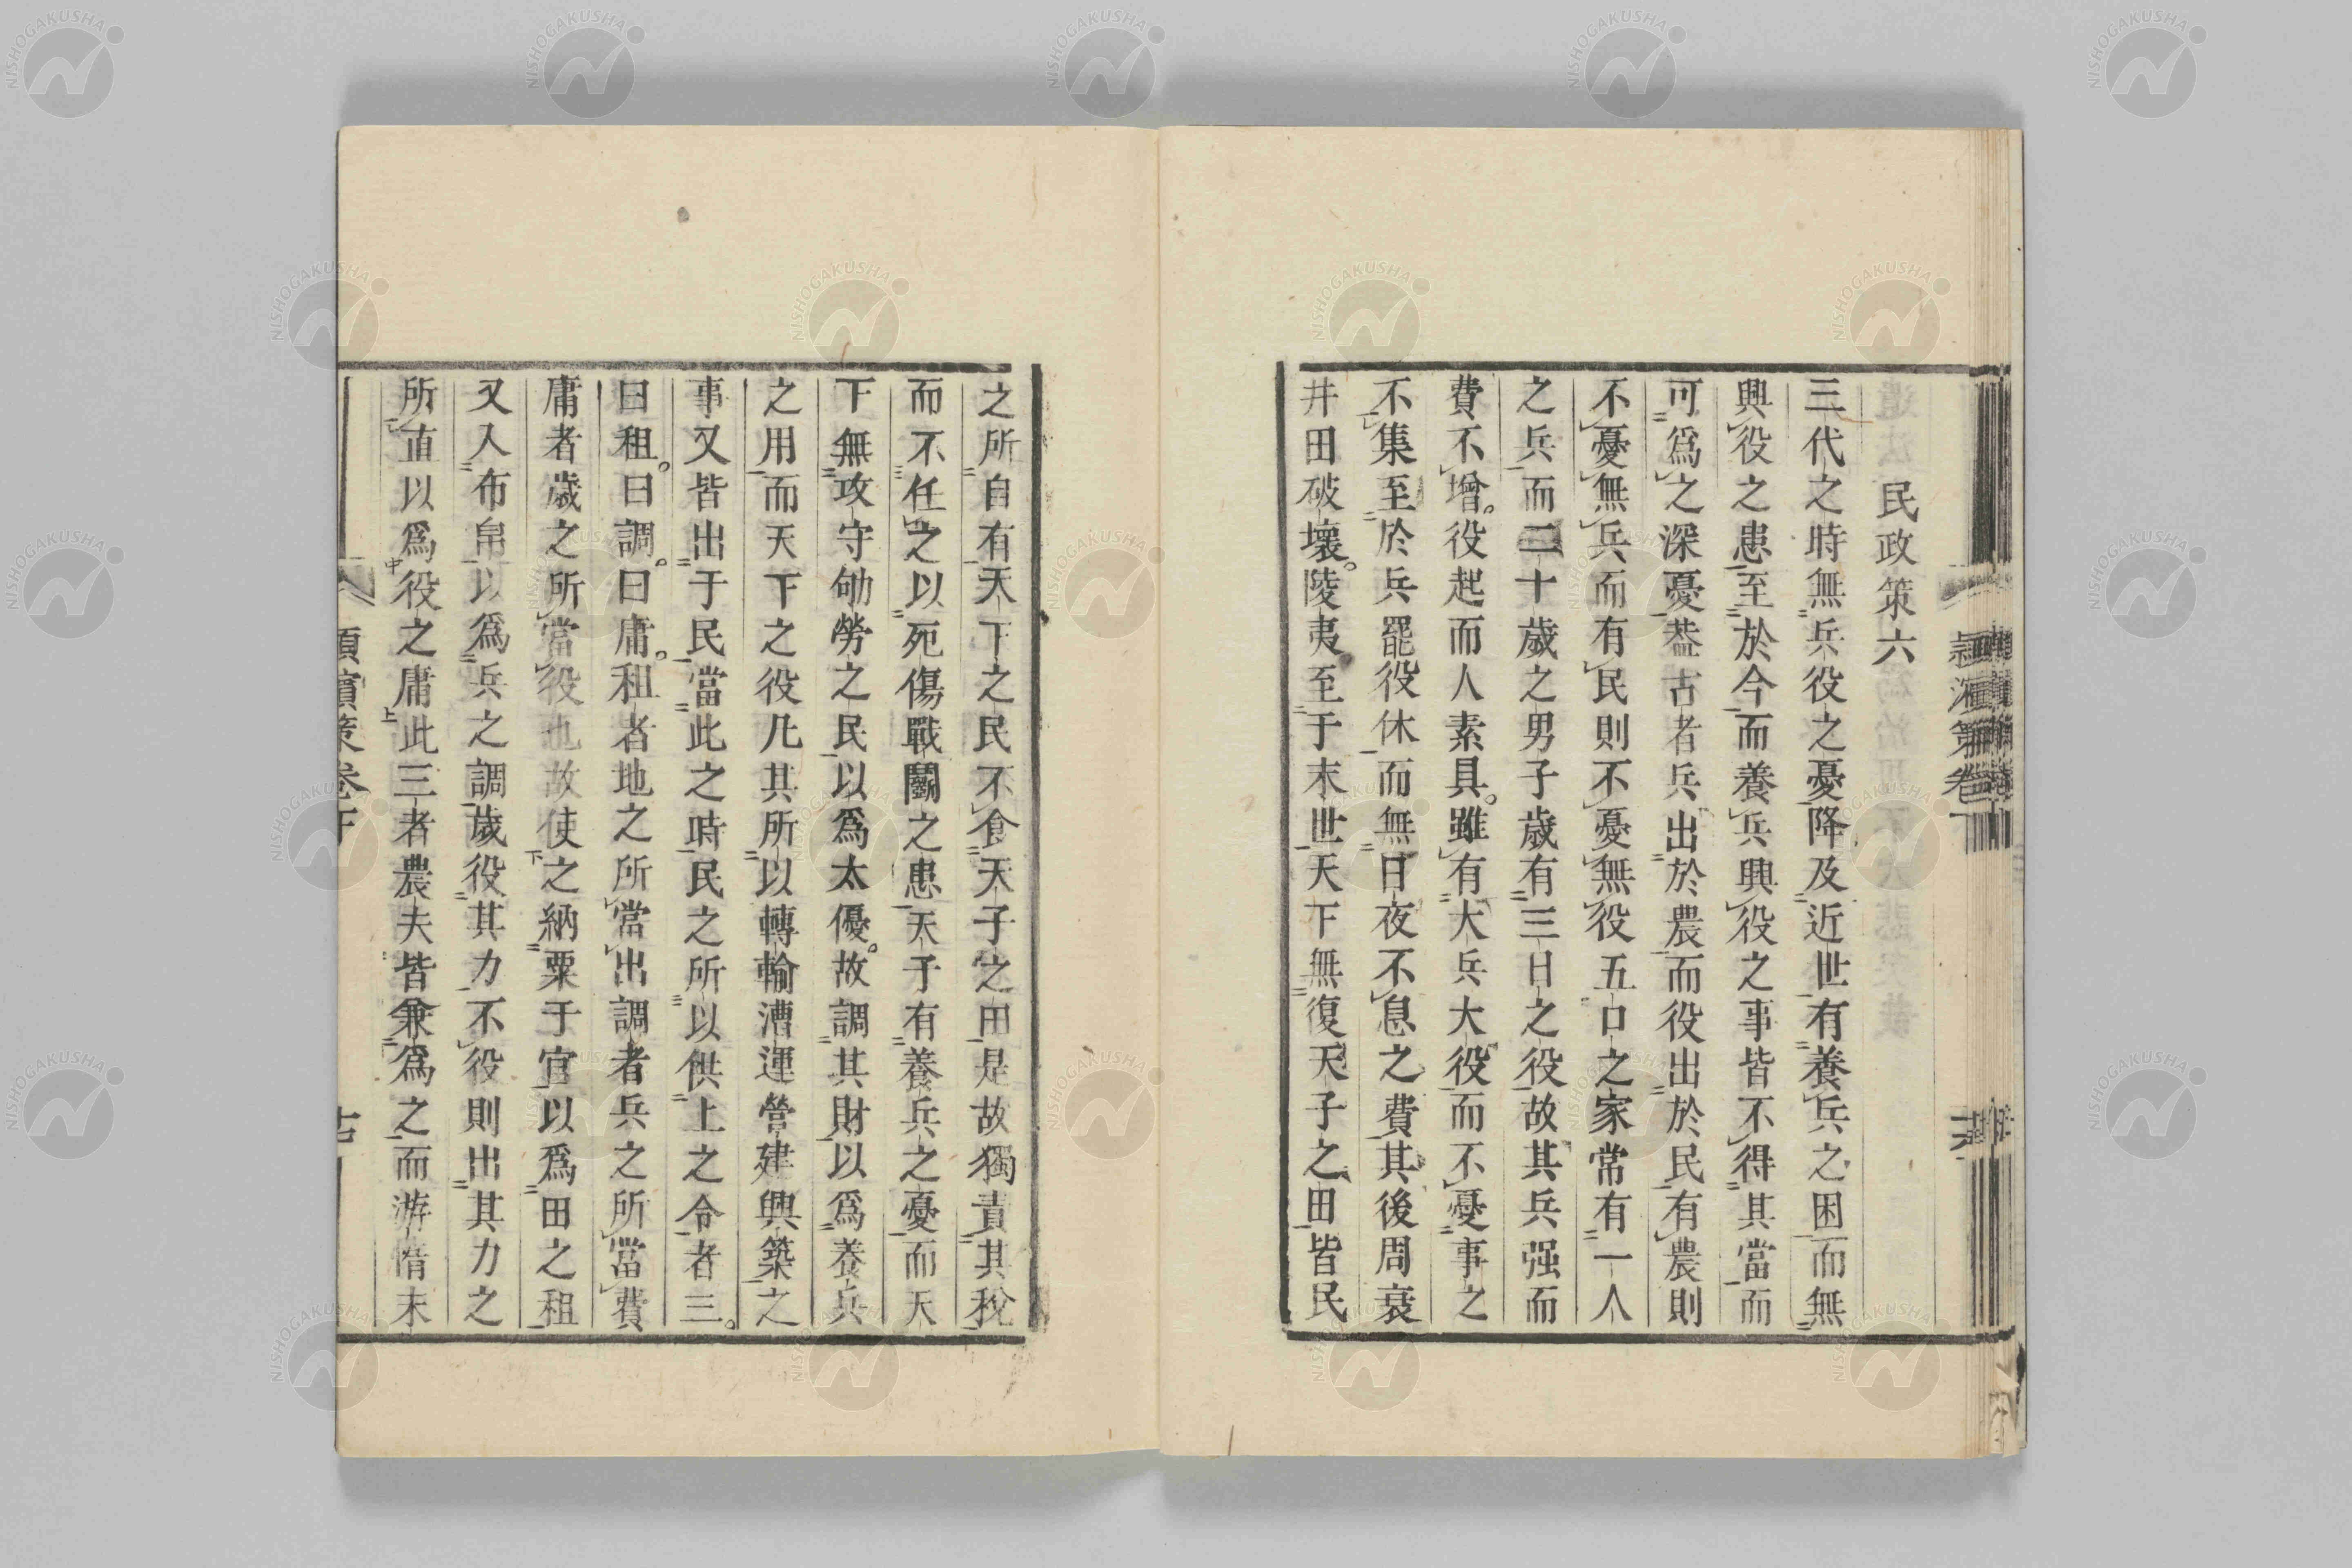 民政策六
三代之時無兵役之憂降及近世有養兵之困而無
興役之患至於今而養兵興役之事皆不得其當而
可爲之深憂葢古者兵出於農而役出於民有農則
不憂無兵而有民則不憂無役五口之家常有一人
之兵而二十歲之男子歲有三日之役故其兵强而
費不增。役起而人素具。雖有大兵大役而不憂事之
不集至於兵罷役休而無日夜不息之費其後周衰
井田破壞。陵夷至于末世天下無復天子之田皆民
之所自有天下之民不食天子之田是故獨責其稅
而不任之以死傷戰鬭之患天子有養兵之憂而天
下無攻守劬勞之民以爲太優。故調其財以爲養兵
之用而天下之役凡其所以轉輸漕運營建興築之
事又皆出于民當此之時民之所以供上之令者三。
曰租。曰調。曰庸。租者地之所當出調者兵之所當費
庸者歲之所當役也故使之納粟于官以爲田之租
又入布帛以爲兵之調歲役其力不役則出其力之
所直以爲役之庸此三者農夫皆兼爲之而游惰末
NISHOGAKUSHA